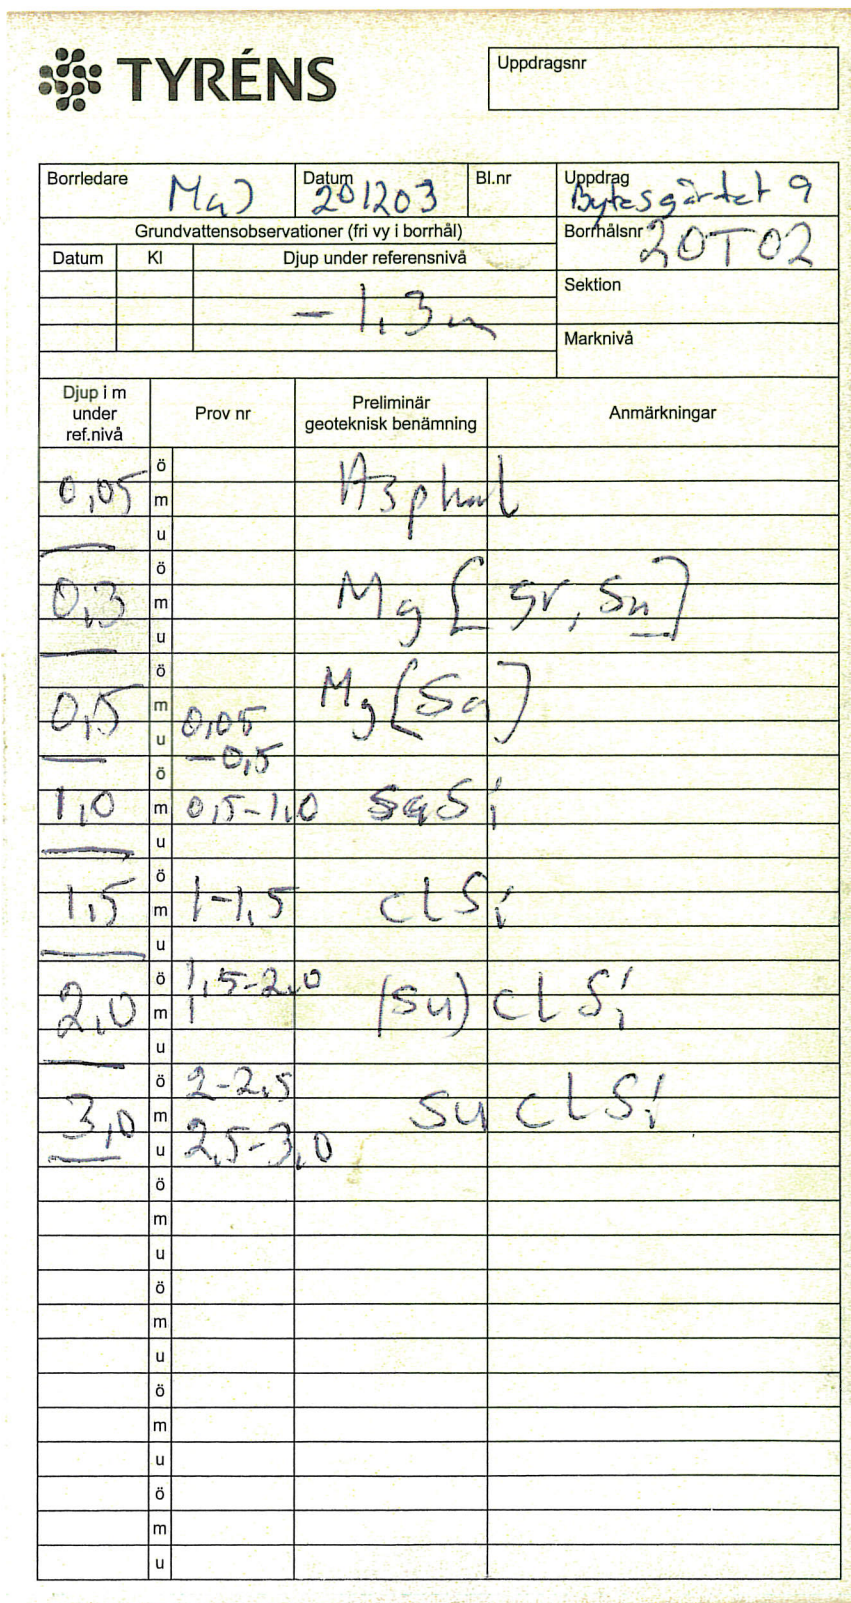 TYRÉNS
Uppdragsnr
Borrledare
MaJ
Datum
201203
Bl.nr
Uppdrag
Bytesgärdet 9
Grundvattensobservationer (fri vy i borrhål)
Borrhålsnr
20T02
Datum Kl Djup under referensnivå
-1,3m
Sektion
Marknivå
Djup i m under ref.nivå
Prov nr
Preliminär geoteknisk benämning
Anmärkningar
ö
0,05 m Asphal
u
ö
0,3 m Mg [gr, Sa]
u
ö
0,5 m Mg [Sa]
u 0,05
-0,5
ö
1,0 m 0,5-1,0 saSi
u
ö
1,5 m 1-1,5 clSi
u
ö 1,5-2,0
2,0 m (su) clSi
u
ö 2-2,5
3,0 m su clSi
u 2,5-3,0
ö
m
u
ö
m
u
ö
m
u
ö
m
u